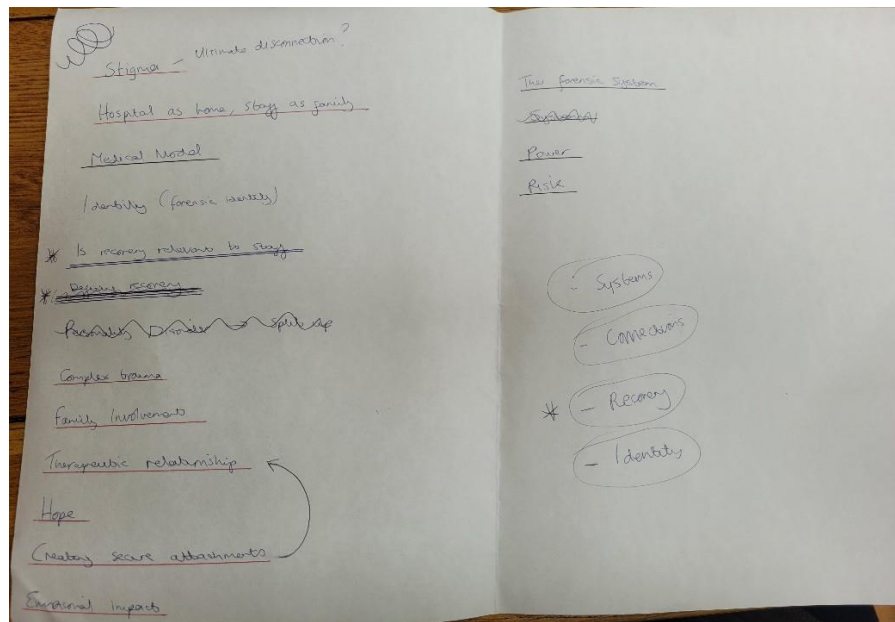 Stigma – Ultimate disconnection?
Hospital as home, staff as family
Medical Model
Identity (forensic identity)
* Is recovery relevant to staff
* Defining recovery
Personality Disorder split up
Complex trauma
Family Involvement
Therapeutic relationship
Hope
Creating secure attachments
Emotional impact
The forensic system
Power
Risk
– Systems
– Connections
* – Recovery
– Identity